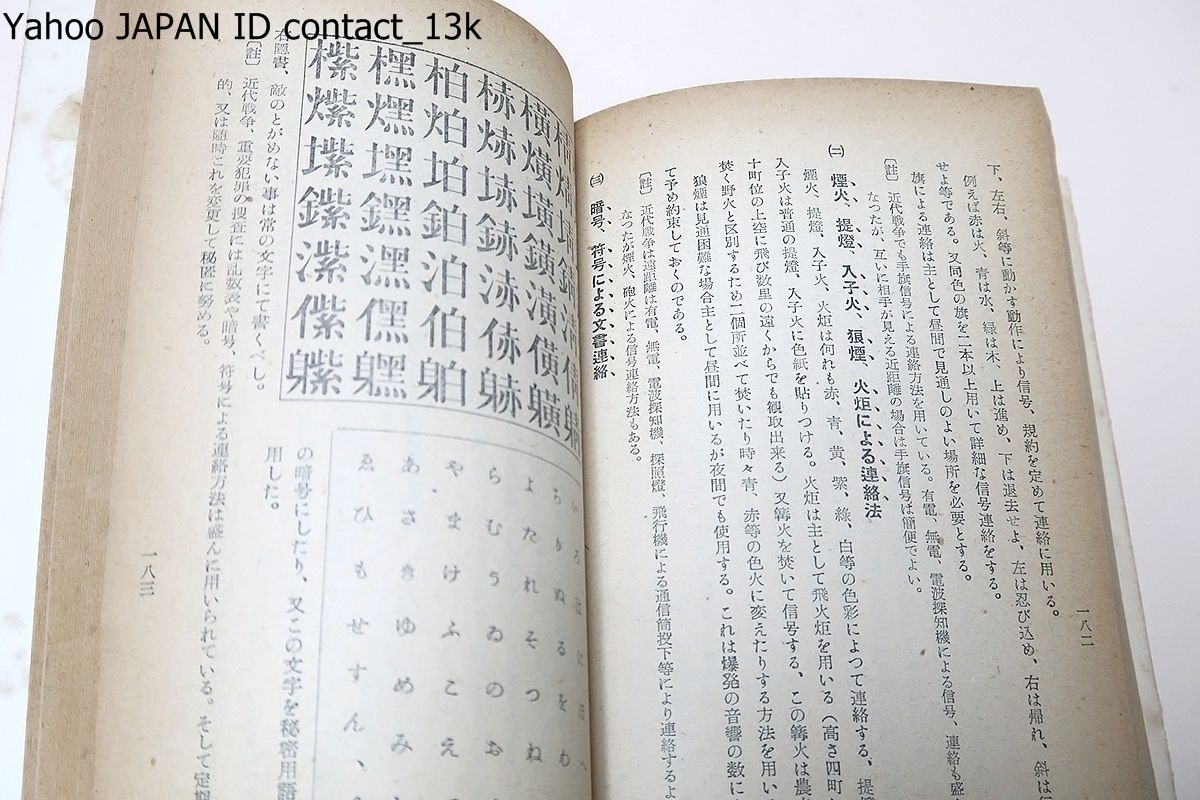 Yahoo JAPAN ID contact_13k
下、左右、斜等に動かす動作により信号、規約を定めて連絡に用いる。
例えば赤は火、青は水、緑は木、上は進め、下は退去せよ、左は忍び込め、右は帰れ、斜は
せよ等である。又同色の旗を二本以上用いて詳細な信号連絡をする。
旗による連絡は主として昼間で見通しのよい場所を必要とする。
〔註〕近代戦争でも手旗信号による連絡方法を用いている。有電、無電、電波探知機による信号、連絡も盛
なつたが、互いに相手が見える近距離の場合は手旗信号は簡便でよい。
㈡ 煙火、提燈、入子火、狼煙、火炬による連絡法
煙火、提燈、入子火、火炬は何れも赤、青、黄、紫、綠、白等の色彩によつて連絡する、提
入子火は普通の提燈、入子火に色紙を貼りつける。火炬は主として飛火炬を用いる(高さ四町
十町位の上空に飛び数里の遠くからでも観取出来る)又篝火を焚いて信号する、この篝火は農
焚く野火と区別するため二個所並べて焚いたり時々青、赤等の色火に変えたりする方法を用い
狼煙は見通困難な場合主として昼間に用いるが夜間でも使用する。これは爆発の音響の数に
て予め約束しておくのである。
〔註〕近代戦争は遠距離は有電、無電、電波探知機、探照燈、飛行機による通信筒投下等により連絡するよ
なつたが煙火、砲火による信号連絡方法もある。
㈢ 暗号、符号による文書連絡
一八二
ちりぬるをわ
よたれそつね
らむうゐのお
やまけふこえ
あさきゆめみ
ゑひもせすん、
の暗号にしたり、又この文字を秘密用語
用した。
右隠書、敵のとがめない事は常の文字にて書くべし。
〔註〕近代戦争、重要犯罪の捜査には乱数表や暗号、符号による連絡方法は盛んに用いられている。そして定期
的、又は随時これを変更して秘匿に努める。
一八三